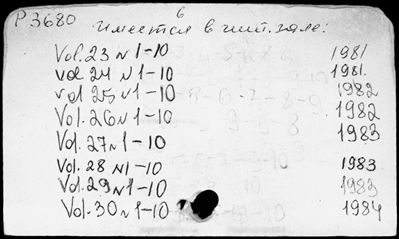 Р3680 6
Имеется в чит. зале:
Vol. 23 N 1-10 1981
vol 24 N 1-10 1981.
vol 25 N 1-10 1982
Vol. 26 N 1-10 1982
Vol. 27 N 1-10 1983
Vol. 28 N 1-10 1983
Vol. 29 N 1-10 1983
Vol. 30 N 1-10 1984